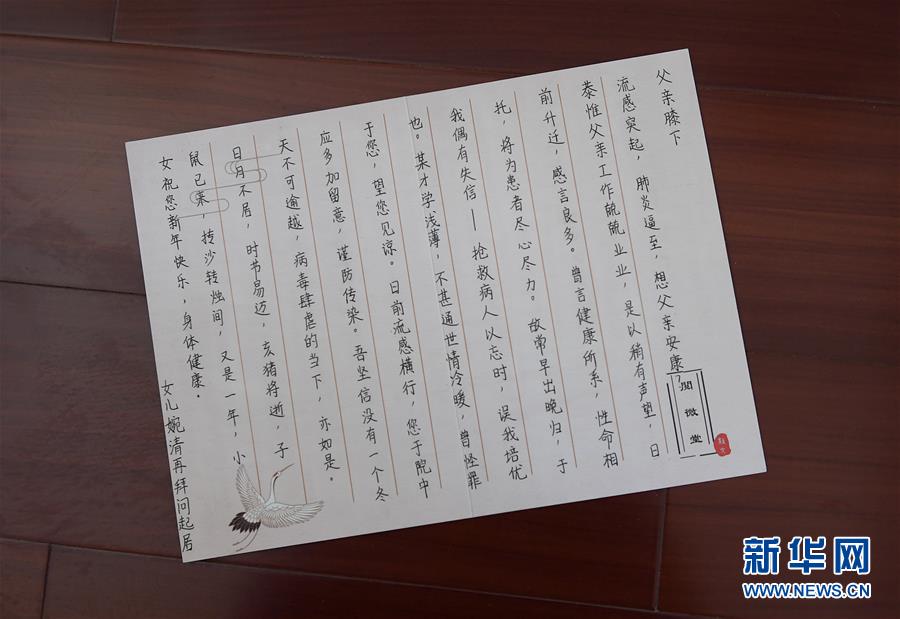 父亲膝下
流感突起，肺炎逼至，想父亲安康？
恭惟父亲工作兢兢业业，是以稍有声望，日
前升迁，感言良多。曾言健康所系，性命相
托，将为患者尽心尽力。故常早出晚归，于
我偶有失信——抢救病人以忘时，误我培优
也。某才学浅薄，不甚通世情冷暖，曾怪罪
于您，望您见谅。日前流感横行，您于院中
应多加留意，谨防传染。吾坚信没有一个冬
天不可逾越，病毒肆虐的当下，亦如是。
日月不居，时节易迈，亥猪将逝，子
鼠已来，抟沙转烛间，又是一年，小
女祝您新年快乐，身体健康。
女儿婉清再拜问起居
閲微堂
新华网
WWW.NEWS.CN